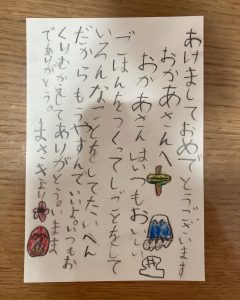 あけましておめでとうございます
おかあさんへ
おかあさんはいつもおいしい
ごはんをつくってしごとをして
いろんなことをしてたいへん
だからもうやすんでいいよいつもお
くりむかえしてありがとう。います
でありがとう。
まさきより